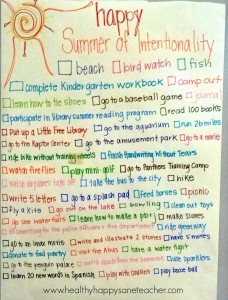 happy
Summer of Intentionality
beach bird watch fish
complete Kindergarten workbook camp out
learn how to tie shoes go to a baseball game puma
participate in library summer reading program read 100 books
Put up a Little Free Library go to the aquarium run 26 miles
go to the Raptor Center go to the amusement park go to a movie
ride bike without training wheels finish Handwriting Without Tears
watch fireflies play mini-golf go to Panthers Training Camp
watch airplanes take off take the bus to the city hike
write 5 letters go to a splash pad feed horses picnic
fly a kite go out on the lake bowling clean out toys
go see waterfalls learn how to make a pie make s'mores
to the police officers fire department ride greenway
go to an IMAX movie write and illustrate 2 stories
donate to food pantry visit the have a water fight
go to the penguin palace use sparklers
learn 20 new words in Spanish play with cousins play board
www.healthyhappysaneteacher.com